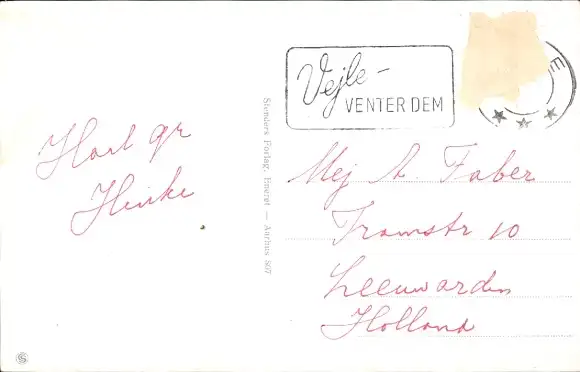 Vejle-
VENTER DEM
E
Hart gr
Hinke
Mej A. Faber
Tramstr 10
Leeuwarden
Holland
Stenders Forlag, Eneret — Aarhus 807